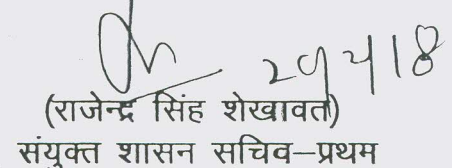 29/4/18
(राजेन्द्र सिंह शेखावत)
संयुक्त शासन सचिव–प्रथम